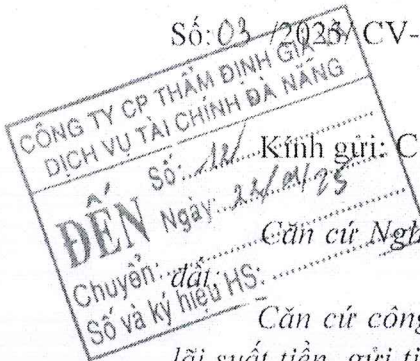 Số: 03 /2025/ CV-
CÔNG TY CP THẨM ĐỊNH GIÁ
DỊCH VỤ TÀI CHÍNH ĐÀ NẴNG
ĐẾN
Số:
Ngày:
Chuyển:
Số và ký hiệu HS:
Kính gửi: C
Căn cứ Ngh
đất;
Căn cứ công
lãi suất tiền gửi ti